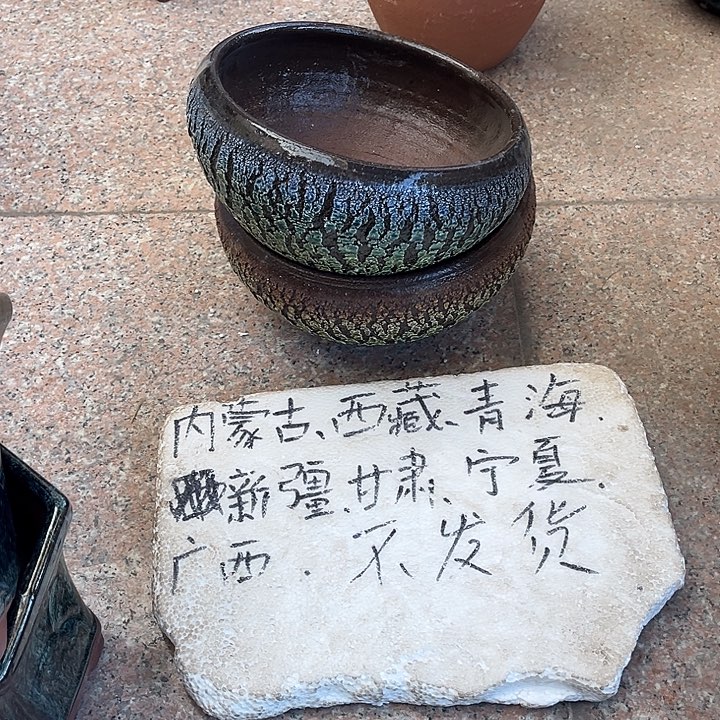 内蒙古、西藏、青海.
新疆、甘肃、宁夏.
广西.不发货